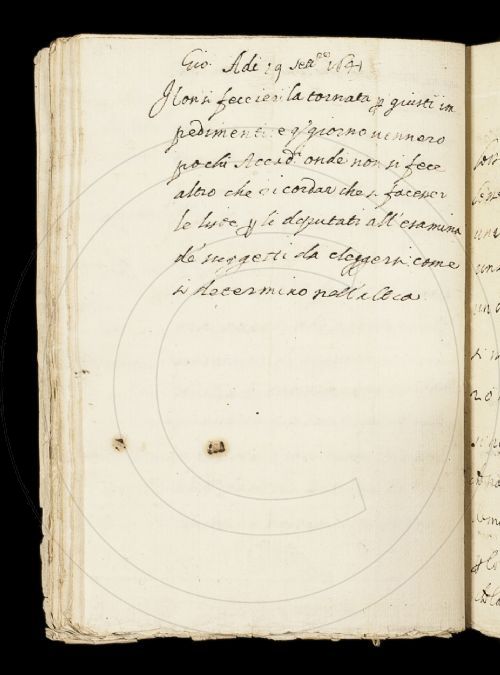 Gio. Adi 19 Sett.bre 1641
Non si fecie ieri la tornata p giusti in
pedimenti: e q.o giorno vennero
pochi Accad.i onde non si fece
altro che ricordar che si facesser
le liste p li deputati all'esamina
de' suggetti da eleggersi come
si determino nell'altra